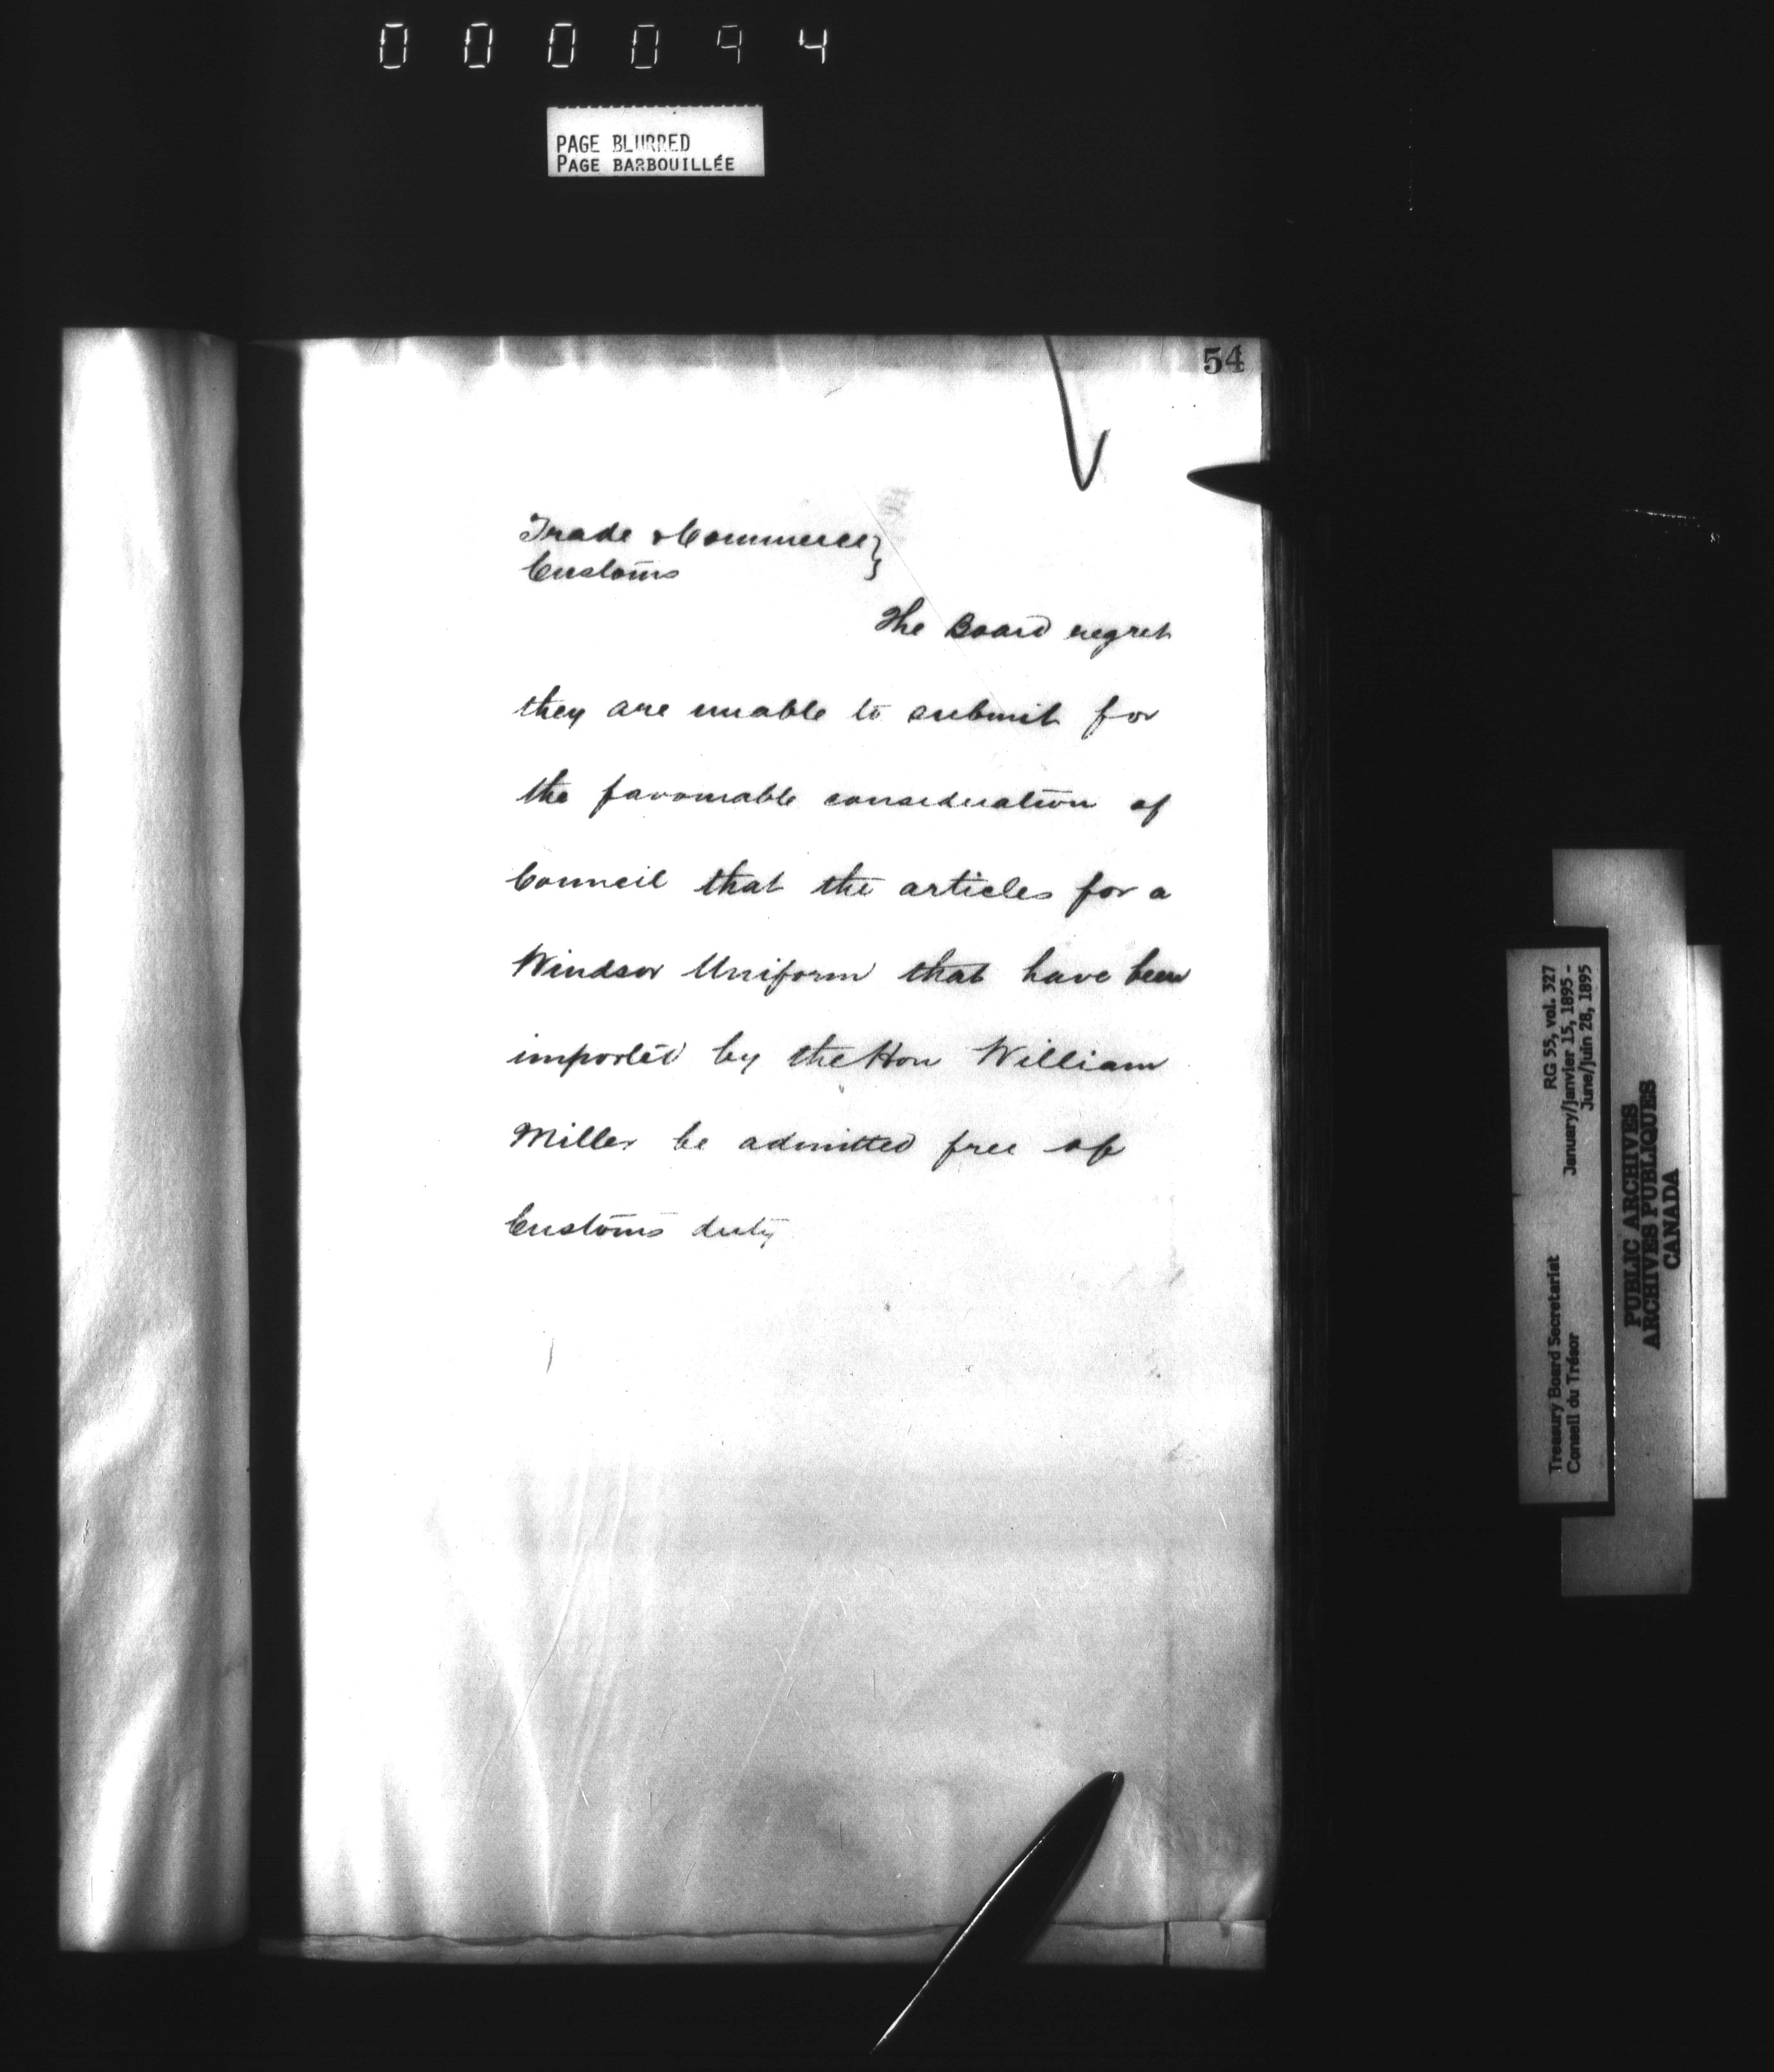 000094
PAGE BLURRED
PAGE BARBOUILLÉE
54
Trade & Commerce }
Customs
The Board regret
they are unable to submit for
the favourable consideration of
Council that the articles for a
Windsor Uniform that have been
imported by the Hon William
Miller be admitted free of
Customs duty
Treasury Board Secretariat RG 55, vol. 327
Conseil du Trésor January/janvier 15, 1895 -
June/juin 28, 1895
PUBLIC ARCHIVES
ARCHIVES PUBLIQUES
CANADA